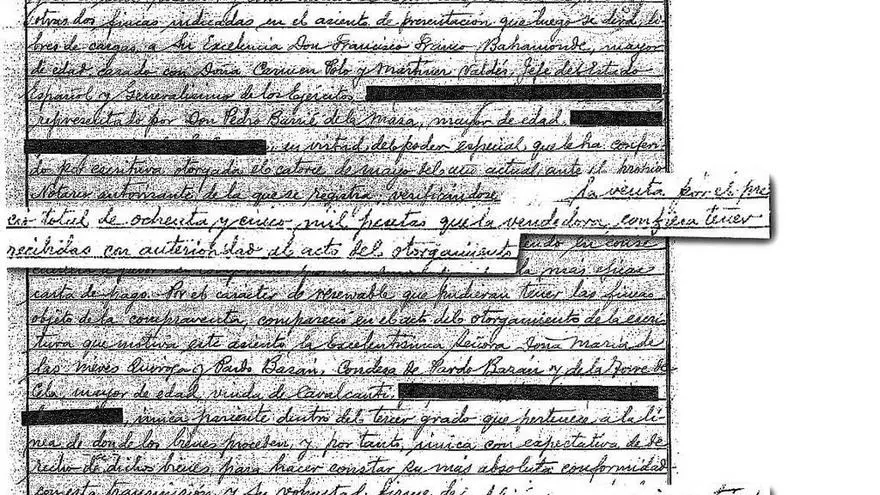 otras dos fincas indicadas en el asiento de presentación que luego se dirá, li-
bres de cargas, a Su Excelencia Don Francisco Franco Bahamonde, mayor
de edad, casado con Doña Carmen Polo y Martínez Valdés, Jefe del Estado
Español y Generalísimo de los Ejércitos
representado por Don Pedro Barrié de la Maza, mayor de edad
, en virtud del poder especial que le ha conferi-
do por escritura otorgada el catorce de marzo del año actual ante el propio
Notario autorizante de la que se registra, verificándose la venta por el pre
cio total de ochenta y cinco mil pesetas que la vendedora confiesa tener
recibidas con anterioridad al acto del otorgamiento endo en conse
la más eficaz
carta de pago. Por el carácter de reservable que pudieran tener las fincas
objeto de la compraventa, compareció en el acto del otorgamiento de la escri-
tura que motiva este asiento la Excelentísima Señora Doña María de
las Nieves Quiroga y Pardo Bazán, Condesa de Pardo Bazán y de la Torre de
Cela, mayor de edad, viuda de Cavalcanti
, única pariente dentro del tercer grado que pertenece a la lí-
nea de donde los bienes proceden, y por tanto, única con expectativa de de
recho de dichos bienes, para hacer constar su más absoluta conformidad
con esta transmisión y su voluntad firme de